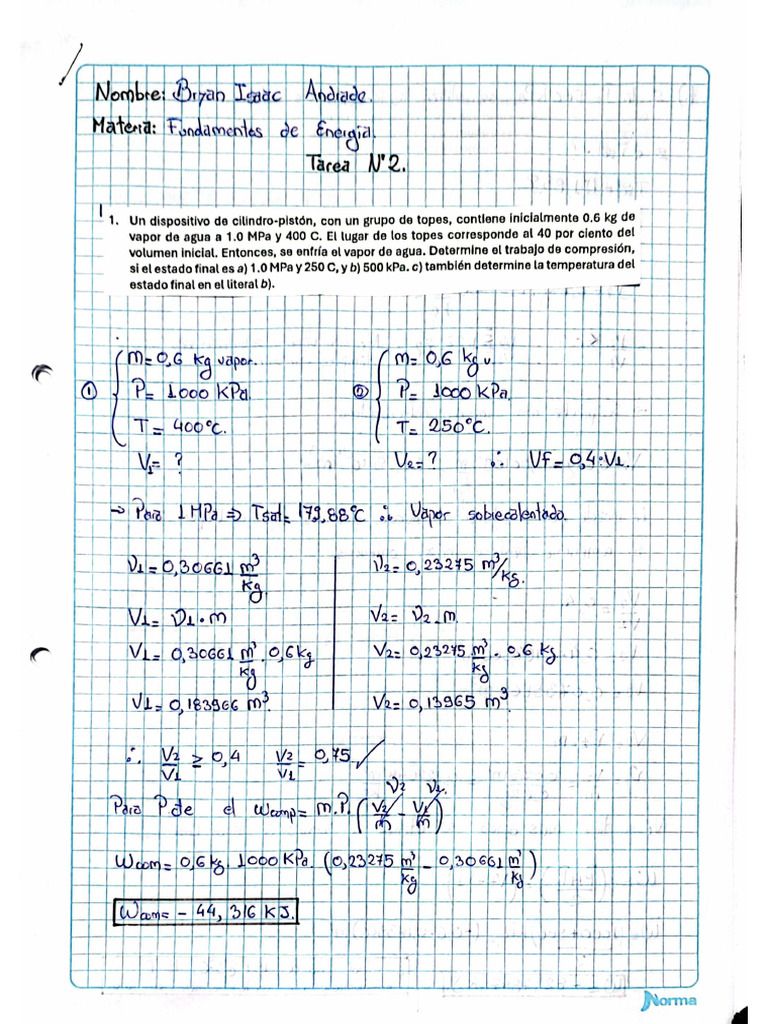 Nombre: Bryan Isaac Andrade.
Materia: Fundamentos de Energia.
Tarea N°2.
1. Un dispositivo de cilindro-pistón, con un grupo de topes, contiene inicialmente 0.6 kg de
vapor de agua a 1.0 MPa y 400 C. El lugar de los topes corresponde al 40 por ciento del
volumen inicial. Entonces, se enfría el vapor de agua. Determine el trabajo de compresión,
si el estado final es a) 1.0 MPa y 250 C, y b) 500 kPa. c) también determine la temperatura del
estado final en el literal b).
m= 0,6 kg vapor. m= 0,6 kg v.
① P= 1000 KPa. ② P= 1000 KPa.
T= 400°C. T= 250°C.
V1= ? V2= ? ∴ Vf = 0,4·V1.
→ Para 1 MPa ⇒ Tsat= 179,88°C ∴ Vapor sobrecalentado.
ν1 = 0,30661 m³/kg ν2= 0,23275 m³/kg.
V1= ν1·m V2= ν2·m.
V1= 0,30661 m³/kg · 0,6kg V2= 0,23275 m³/kg · 0,6 kg.
V1= 0,183966 m³ V2= 0,13965 m³.
∴ V2/V1 ≥ 0,4 V2/V1 = 0,75 ✓
ν2 ν1.
Para P de el Wcomp= m.P. (V2/m - V1/m)
Wcom= 0,6kg. 1000 KPa. (0,23275 m³/kg - 0,30661 m³/kg)
Wcom= - 44, 316 KJ.
Norma